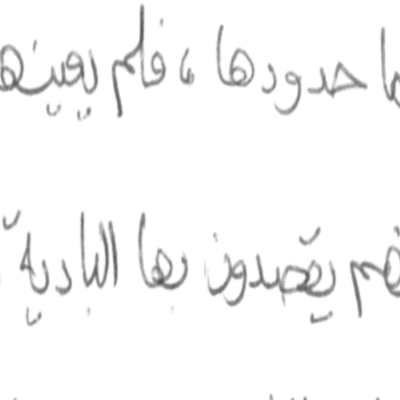 حدودها ، فلم يعينها
فهم يقصدون بها البادية